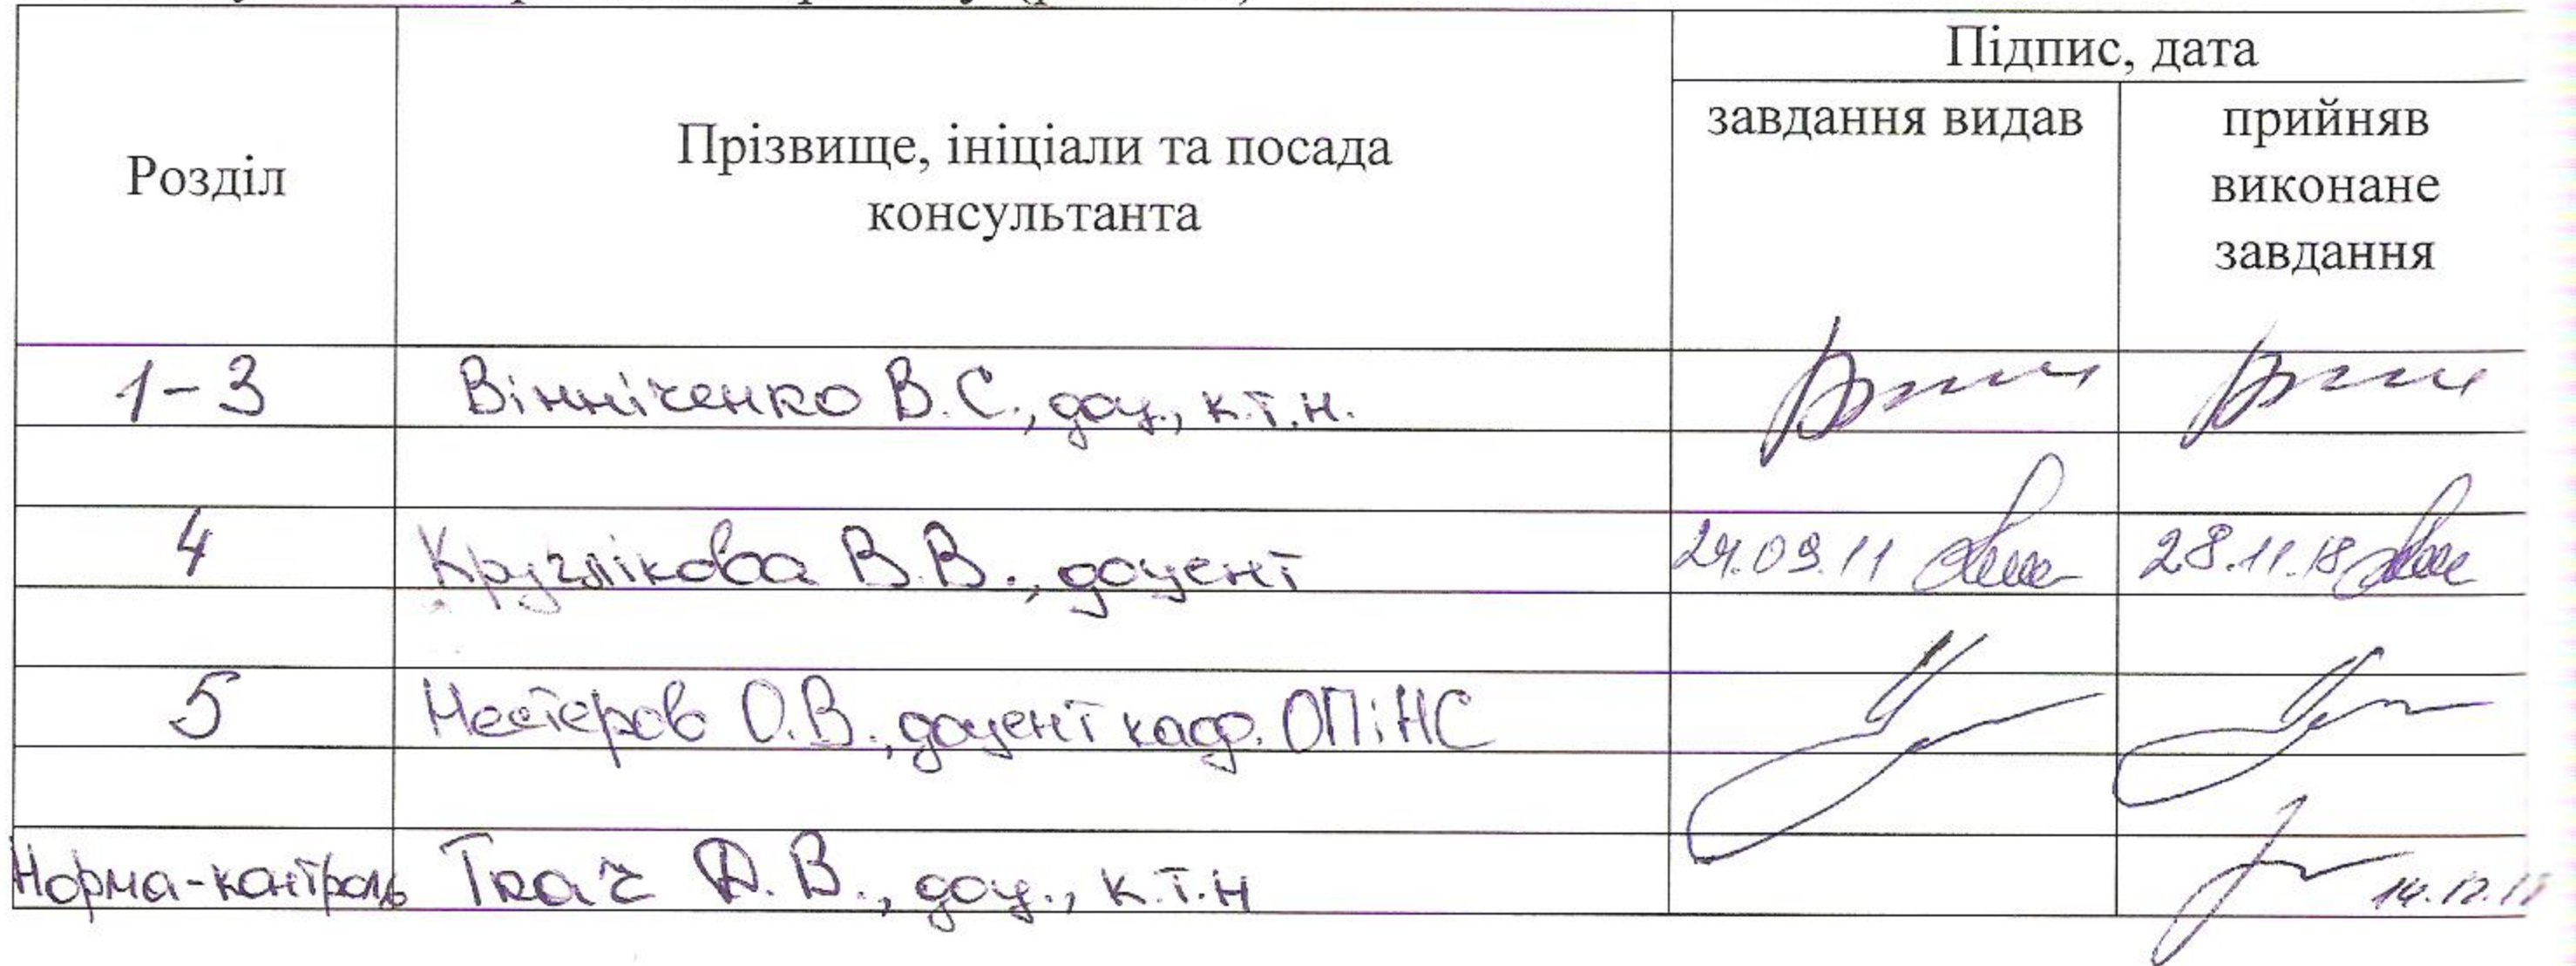 Підпис, дата
Розділ
Прізвище, ініціали та посада
консультанта
завдання видав
прийняв
виконане
завдання
1-3 Вінніченко В.С., доц., к.т.н.
4 Круглікова В.В., доцент 24.09.11 28.11.18
5 Нестеров О.В., доцент каф. ОПіНС
Норма-контроль Ткач Д.В., доц., к.т.н